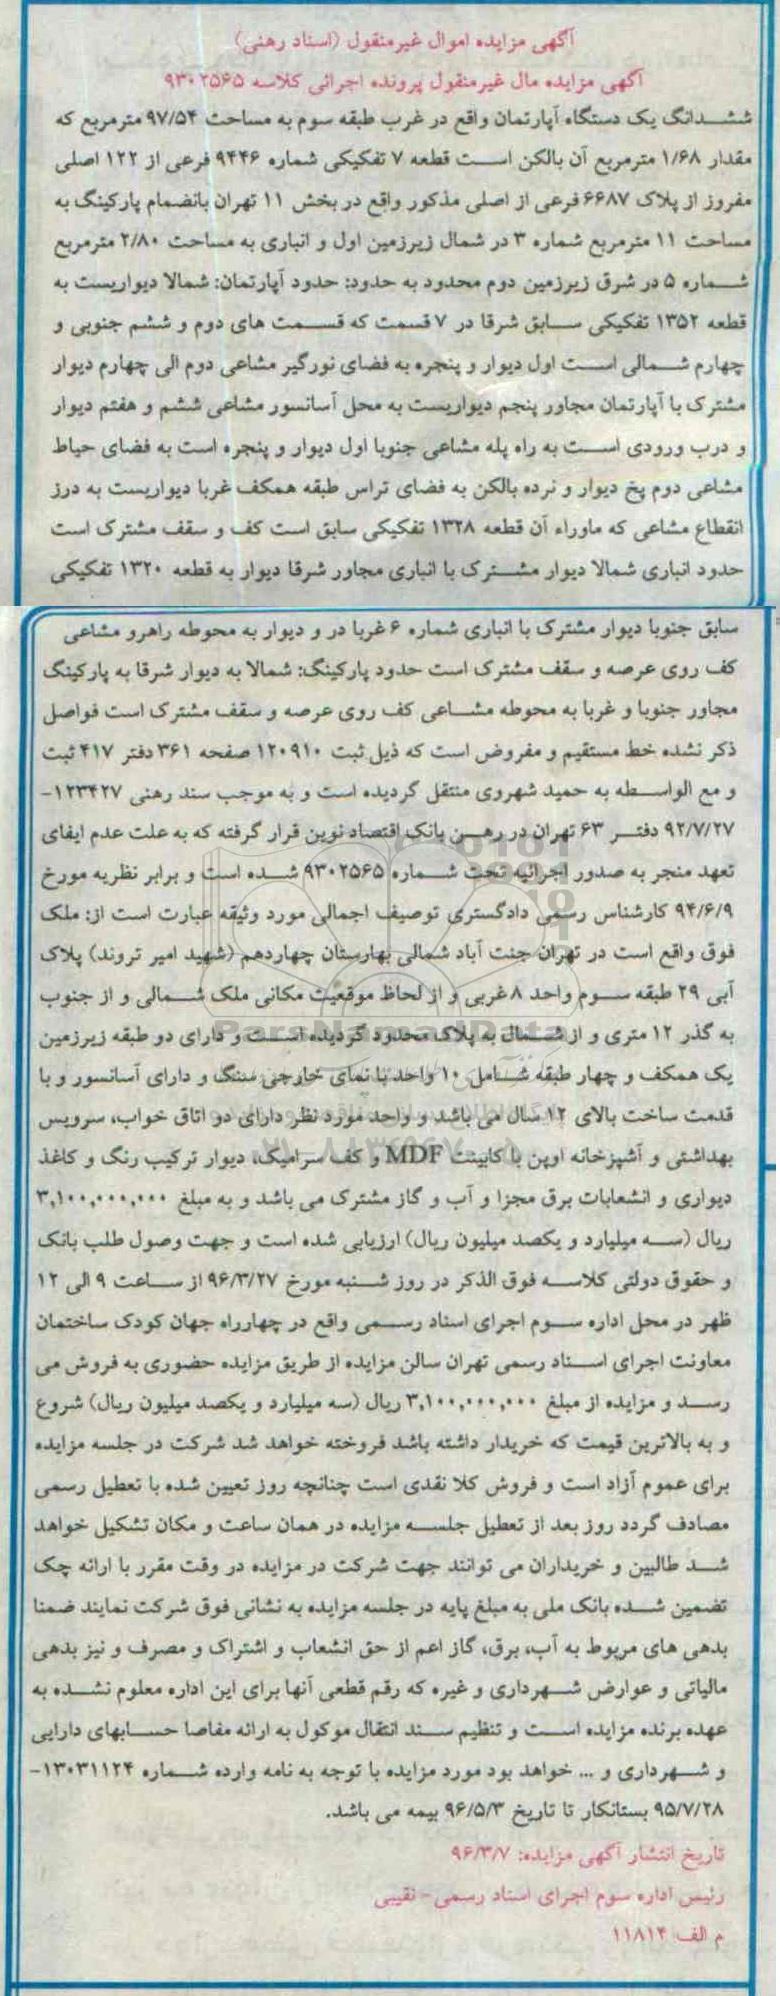 آگهی مزایده اموال غیرمنقول (اسناد رهنی)
آگهی مزایده مال غیرمنقول پرونده اجرائی کلاسه ۹۳۰۲۵۶۵
ششدانگ یک دستگاه آپارتمان واقع در غرب طبقه سوم به مساحت ۹۷/۵۴ مترمربع که
مقدار ۱/۶۸ مترمربع آن بالکن است قطعه ۷ تفکیکی شماره ۹۴۴۶ فرعی از ۱۲۲ اصلی
مفروز از پلاک ۶۶۸۷ فرعی از اصلی مذکور واقع در بخش ۱۱ تهران بانضمام پارکینگ به
مساحت ۱۱ مترمربع شماره ۳ در شمال زیرزمین اول و انباری به مساحت ۲/۸۰ مترمربع
شماره ۵ در شرق زیرزمین دوم محدود به حدود: حدود آپارتمان: شمالا دیواریست به
قطعه ۱۳۵۲ تفکیکی سابق شرقا در ۷ قسمت که قسمت های دوم و ششم جنوبی و
چهارم شمالی است اول دیوار و پنجره به فضای نورگیر مشاعی دوم الی چهارم دیوار
مشترک با آپارتمان مجاور پنجم دیواریست به محل آسانسور مشاعی ششم و هفتم دیوار
و درب ورودی است به راه پله مشاعی جنوبا اول دیوار و پنجره است به فضای حیاط
مشاعی دوم پخ دیوار و نرده بالکن به فضای تراس طبقه همکف غربا دیواریست به درز
انقطاع مشاعی که ماوراء آن قطعه ۱۳۲۸ تفکیکی سابق است کف و سقف مشترک است
حدود انباری شمالا دیوار مشترک با انباری مجاور شرقا دیوار به قطعه ۱۳۲۰ تفکیکی
سابق جنوبا دیوار مشترک با انباری شماره ۶ غربا در و دیوار به محوطه راهرو مشاعی
کف روی عرصه و سقف مشترک است حدود پارکینگ: شمالا به دیوار شرقا به پارکینگ
مجاور جنوبا و غربا به محوطه مشاعی کف روی عرصه و سقف مشترک است فواصل
ذکر نشده خط مستقیم و مفروض است که ذیل ثبت ۱۲۰۹۱۰ صفحه ۳۶۱ دفتر ۴۱۷ ثبت
و مع الواسطه به حمید شهروی منتقل گردیده است و به موجب سند رهنی ۱۲۳۴۲۷-
۹۲/۷/۲۷ دفتر ۶۳ تهران در رهن بانک اقتصاد نوین قرار گرفته که به علت عدم ایفای
تعهد منجر به صدور اجرائیه تحت شماره ۹۳۰۲۵۶۵ شده است و برابر نظریه مورخ
۹۴/۶/۹ کارشناس رسمی دادگستری توصیف اجمالی مورد وثیقه عبارت است از: ملک
فوق واقع است در تهران جنت آباد شمالی بهارستان چهاردهم (شهید امیر تروند) پلاک
آبی ۲۹ طبقه سوم واحد ۸ غربی و از لحاظ موقعیت مکانی ملک شمالی و از جنوب
به گذر ۱۲ متری و از شمال به پلاک محدود گردیده است و دارای دو طبقه زیرزمین
یک همکف و چهار طبقه شامل ۱۰ واحد با نمای خارجی سنگ و دارای آسانسور و با
قدمت ساخت بالای ۱۲ سال می باشد و واحد مورد نظر دارای دو اتاق خواب، سرویس
بهداشتی و آشپزخانه اوپن با کابینت MDF و کف سرامیک، دیوار ترکیب رنگ و کاغذ
دیواری و انشعابات برق مجزا و آب و گاز مشترک می باشد و به مبلغ ۳,۱۰۰,۰۰۰,۰۰۰
ریال (سه میلیارد و یکصد میلیون ریال) ارزیابی شده است و جهت وصول طلب بانک
و حقوق دولتی کلاسه فوق الذکر در روز شنبه مورخ ۹۶/۳/۲۷ از ساعت ۹ الی ۱۲
ظهر در محل اداره سوم اجرای اسناد رسمی واقع در چهارراه جهان کودک ساختمان
معاونت اجرای اسناد رسمی تهران سالن مزایده از طریق مزایده حضوری به فروش می
رسد و مزایده از مبلغ ۳,۱۰۰,۰۰۰,۰۰۰ ریال (سه میلیارد و یکصد میلیون ریال) شروع
و به بالاترین قیمت که خریدار داشته باشد فروخته خواهد شد شرکت در جلسه مزایده
برای عموم آزاد است و فروش کلا نقدی است چنانچه روز تعیین شده با تعطیل رسمی
مصادف گردد روز بعد از تعطیل جلسه مزایده در همان ساعت و مکان تشکیل خواهد
شد طالبین و خریداران می توانند جهت شرکت در مزایده در وقت مقرر با ارائه چک
تضمین شده بانک ملی به مبلغ پایه در جلسه مزایده به نشانی فوق شرکت نمایند ضمنا
بدهی های مربوط به آب، برق، گاز اعم از حق انشعاب و اشتراک و مصرف و نیز بدهی
مالیاتی و عوارض شهرداری و غیره که رقم قطعی آنها برای این اداره معلوم نشده به
عهده برنده مزایده است و تنظیم سند انتقال موکول به ارائه مفاصا حسابهای دارایی
و شهرداری و ... خواهد بود مورد مزایده با توجه به نامه وارده شماره ۱۳۰۳۱۱۲۴-
۹۵/۷/۲۸ بستانکار تا تاریخ ۹۶/۵/۳ بیمه می باشد.
تاریخ انتشار آگهی مزایده: ۹۶/۳/۷
رئیس اداره سوم اجرای اسناد رسمی - نقیبی
م الف ۱۱۸۱۴